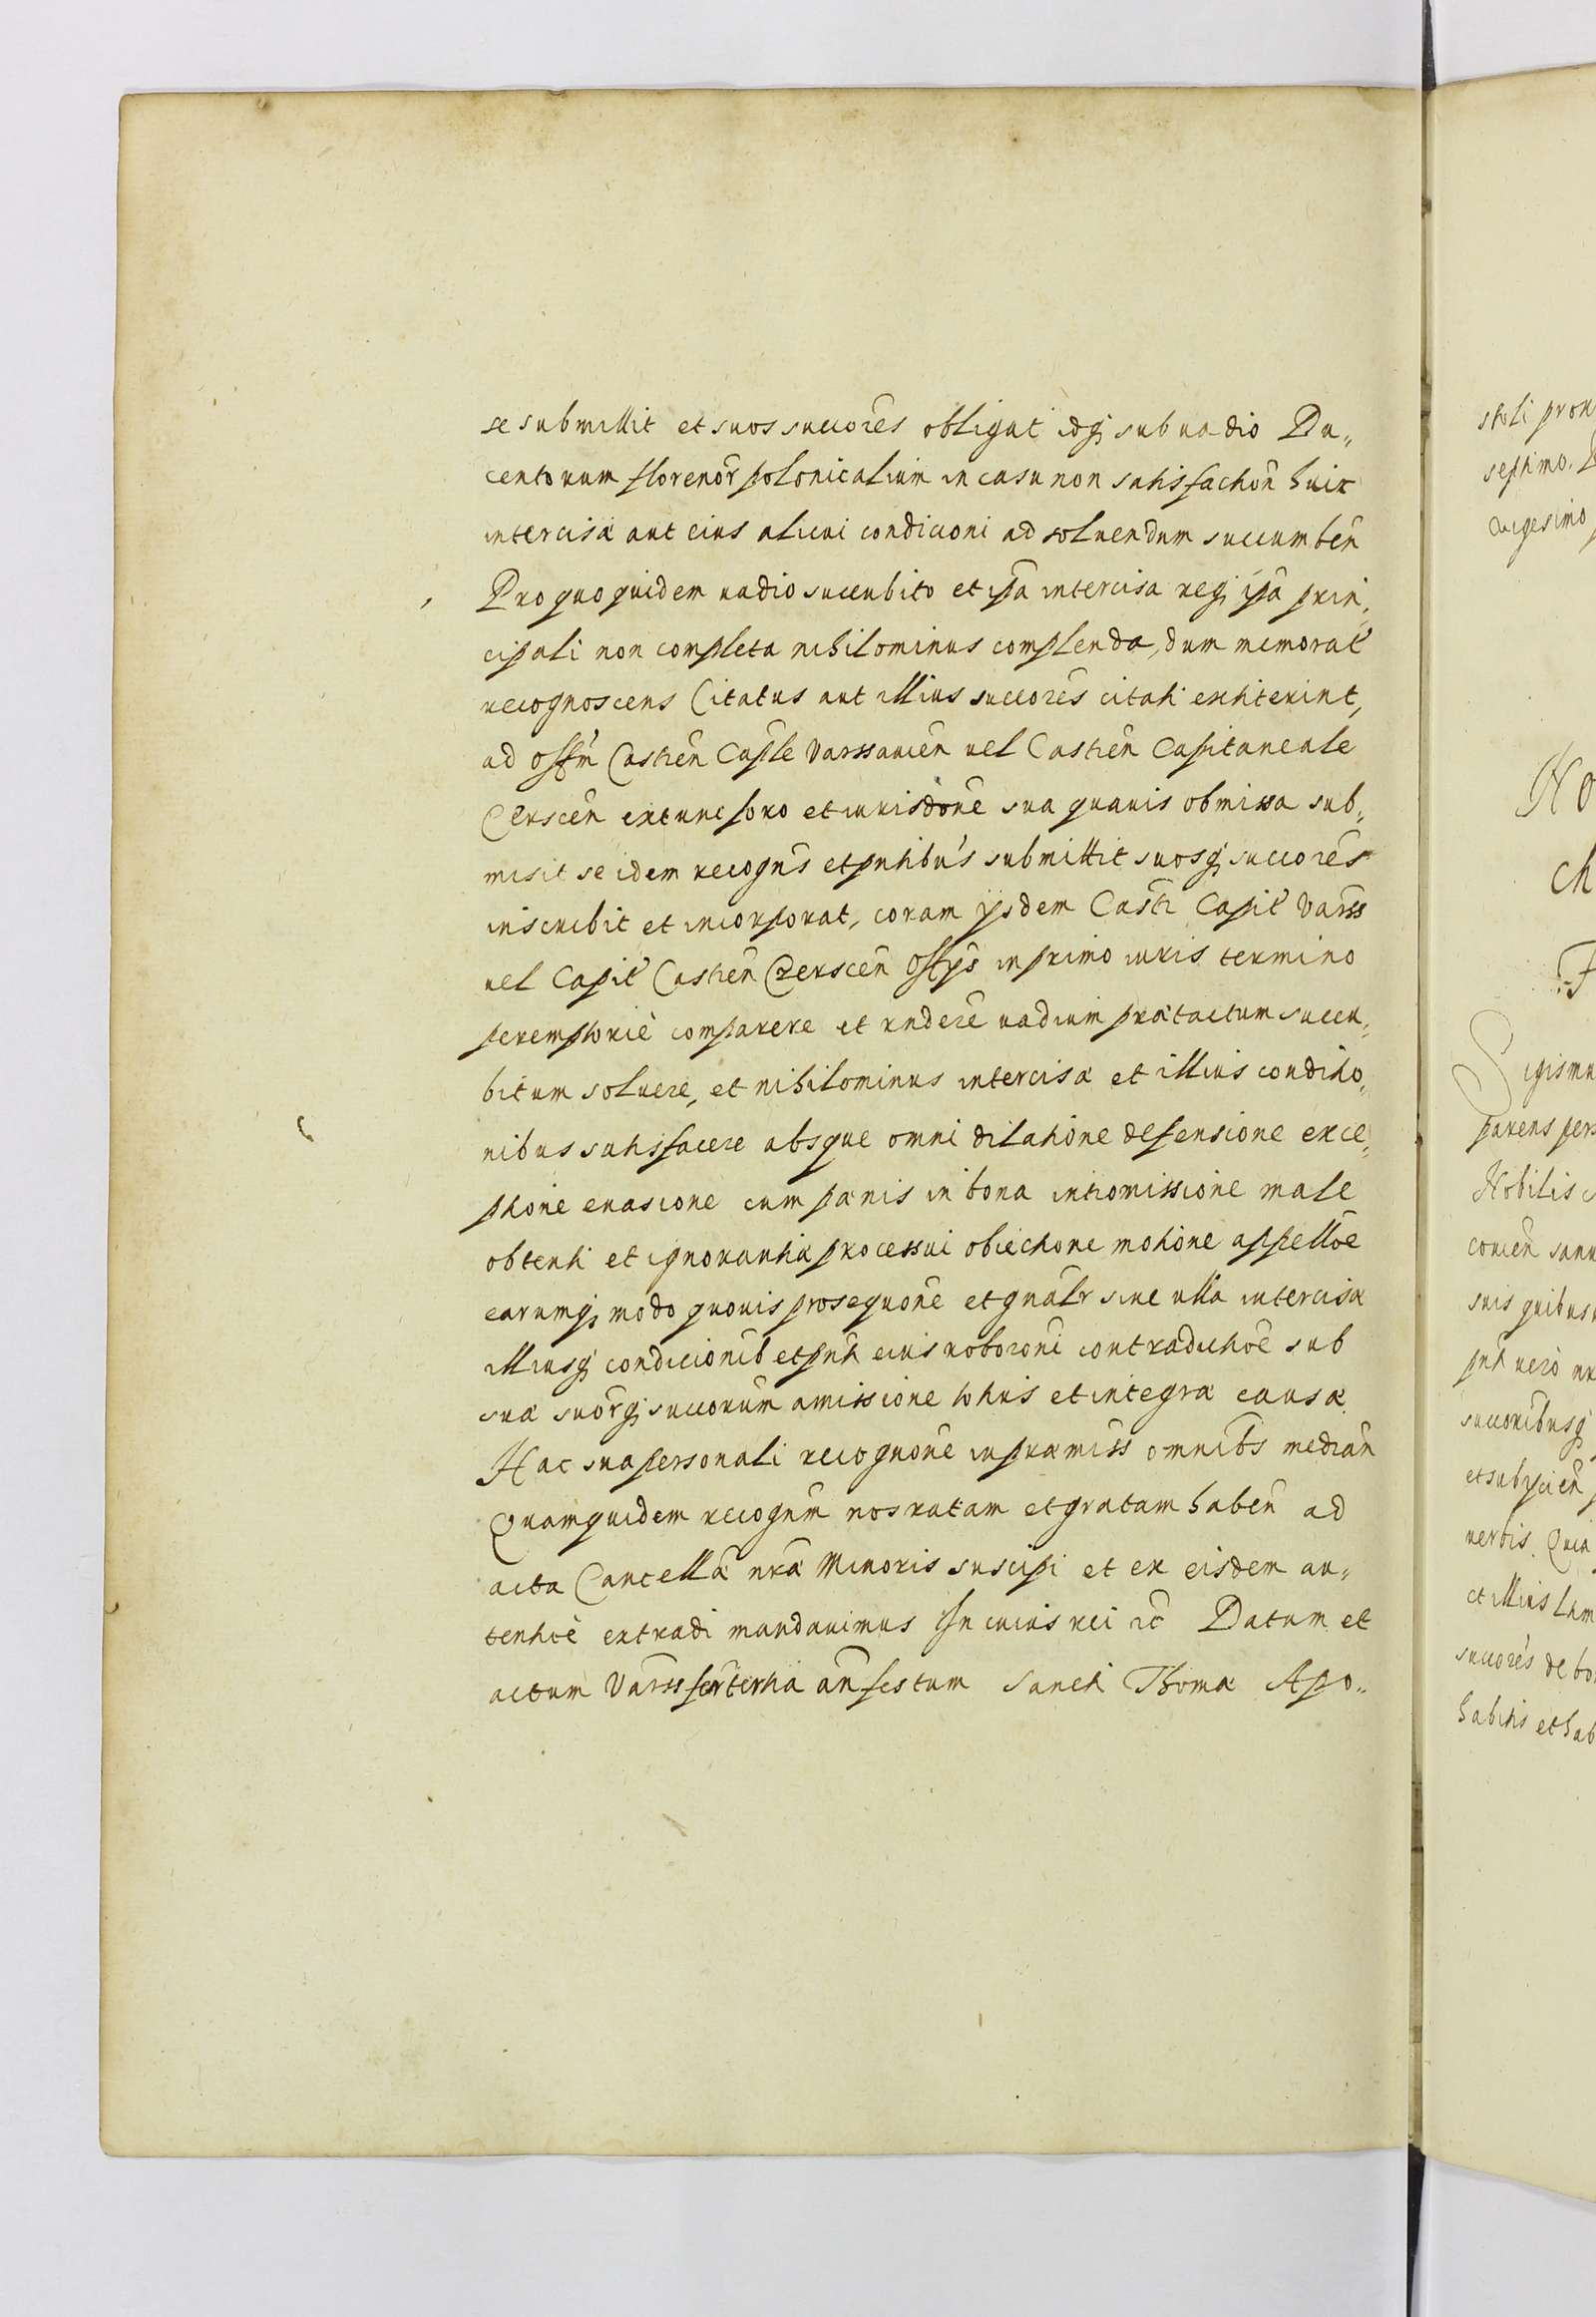 se submittit et suos succōres obligat idq; sub uadio Du„
centorum florenōr polonicalium in casu non satisfactiōn huic
intercisæ aut eius alicui condicioni ad soluendum succumbēn
Pro quo quidem uadio succubito et ipā intercisa req; ipā prin„
cipali non completa nihilominus complenda, dum memorat̄
recognoscens Citatus aut illius succōres citati extiterint,
ad offm̄ Castrēn Capłe Varssauiēn uel Castrēn Capitaneale
Cerscēn extunc foro et iurisdōne sua quauis obmissa sub„
misit se idem recogn̄s et pn̄tibus submittit suosq; succōres
inscribit et incorporat, coram ijsdem Castr̄ Capit̄ Varss̄
uel Capit̄ Castrēn Czerscēn offijs in primo iuris termino
peremptoriè comparere et rn̄dere uadium prætactum succu„
bitum soluere, et nihilominus intercisæ et illius conditio„
nibus satisfacere absque omni dilatione defensione exce„
ptione euasione cum pænis in bona intromissione male
obtenti et ignorantiæ processui obiectione motione appellōe
earumq; modo quouis prosequōne et gnālr siue ulla intercisæ
illiusq; condicionib̄ et pn̄ti eius roborōni contradictiōe sub
suæ suōrq; succorum amissione totius et integræ causæ
Hac sua personali recognōne in præmiss̄ omnibs mediān
Quamquidem recognm̄ nos ratam et gratam habēn ad
acta Cancellā nr̄æ Minoris suscipi et ex eisdem au„
tenticè extradi mandauimus In cuius rei etc̄ Datum et
actum Varss̄ fer̄ tertia ān festum Sancti Thomæ Apo„
stoli prox
septimo.
uigesimo
No
ch
F
Sigismu
parens pers
Nobilis
coruēn sanu
suis quibus
pn̄ti uerò
succoribusq;
et subijciēn
uerbis. Quia
et illius
succōres de bo
habitis et hab